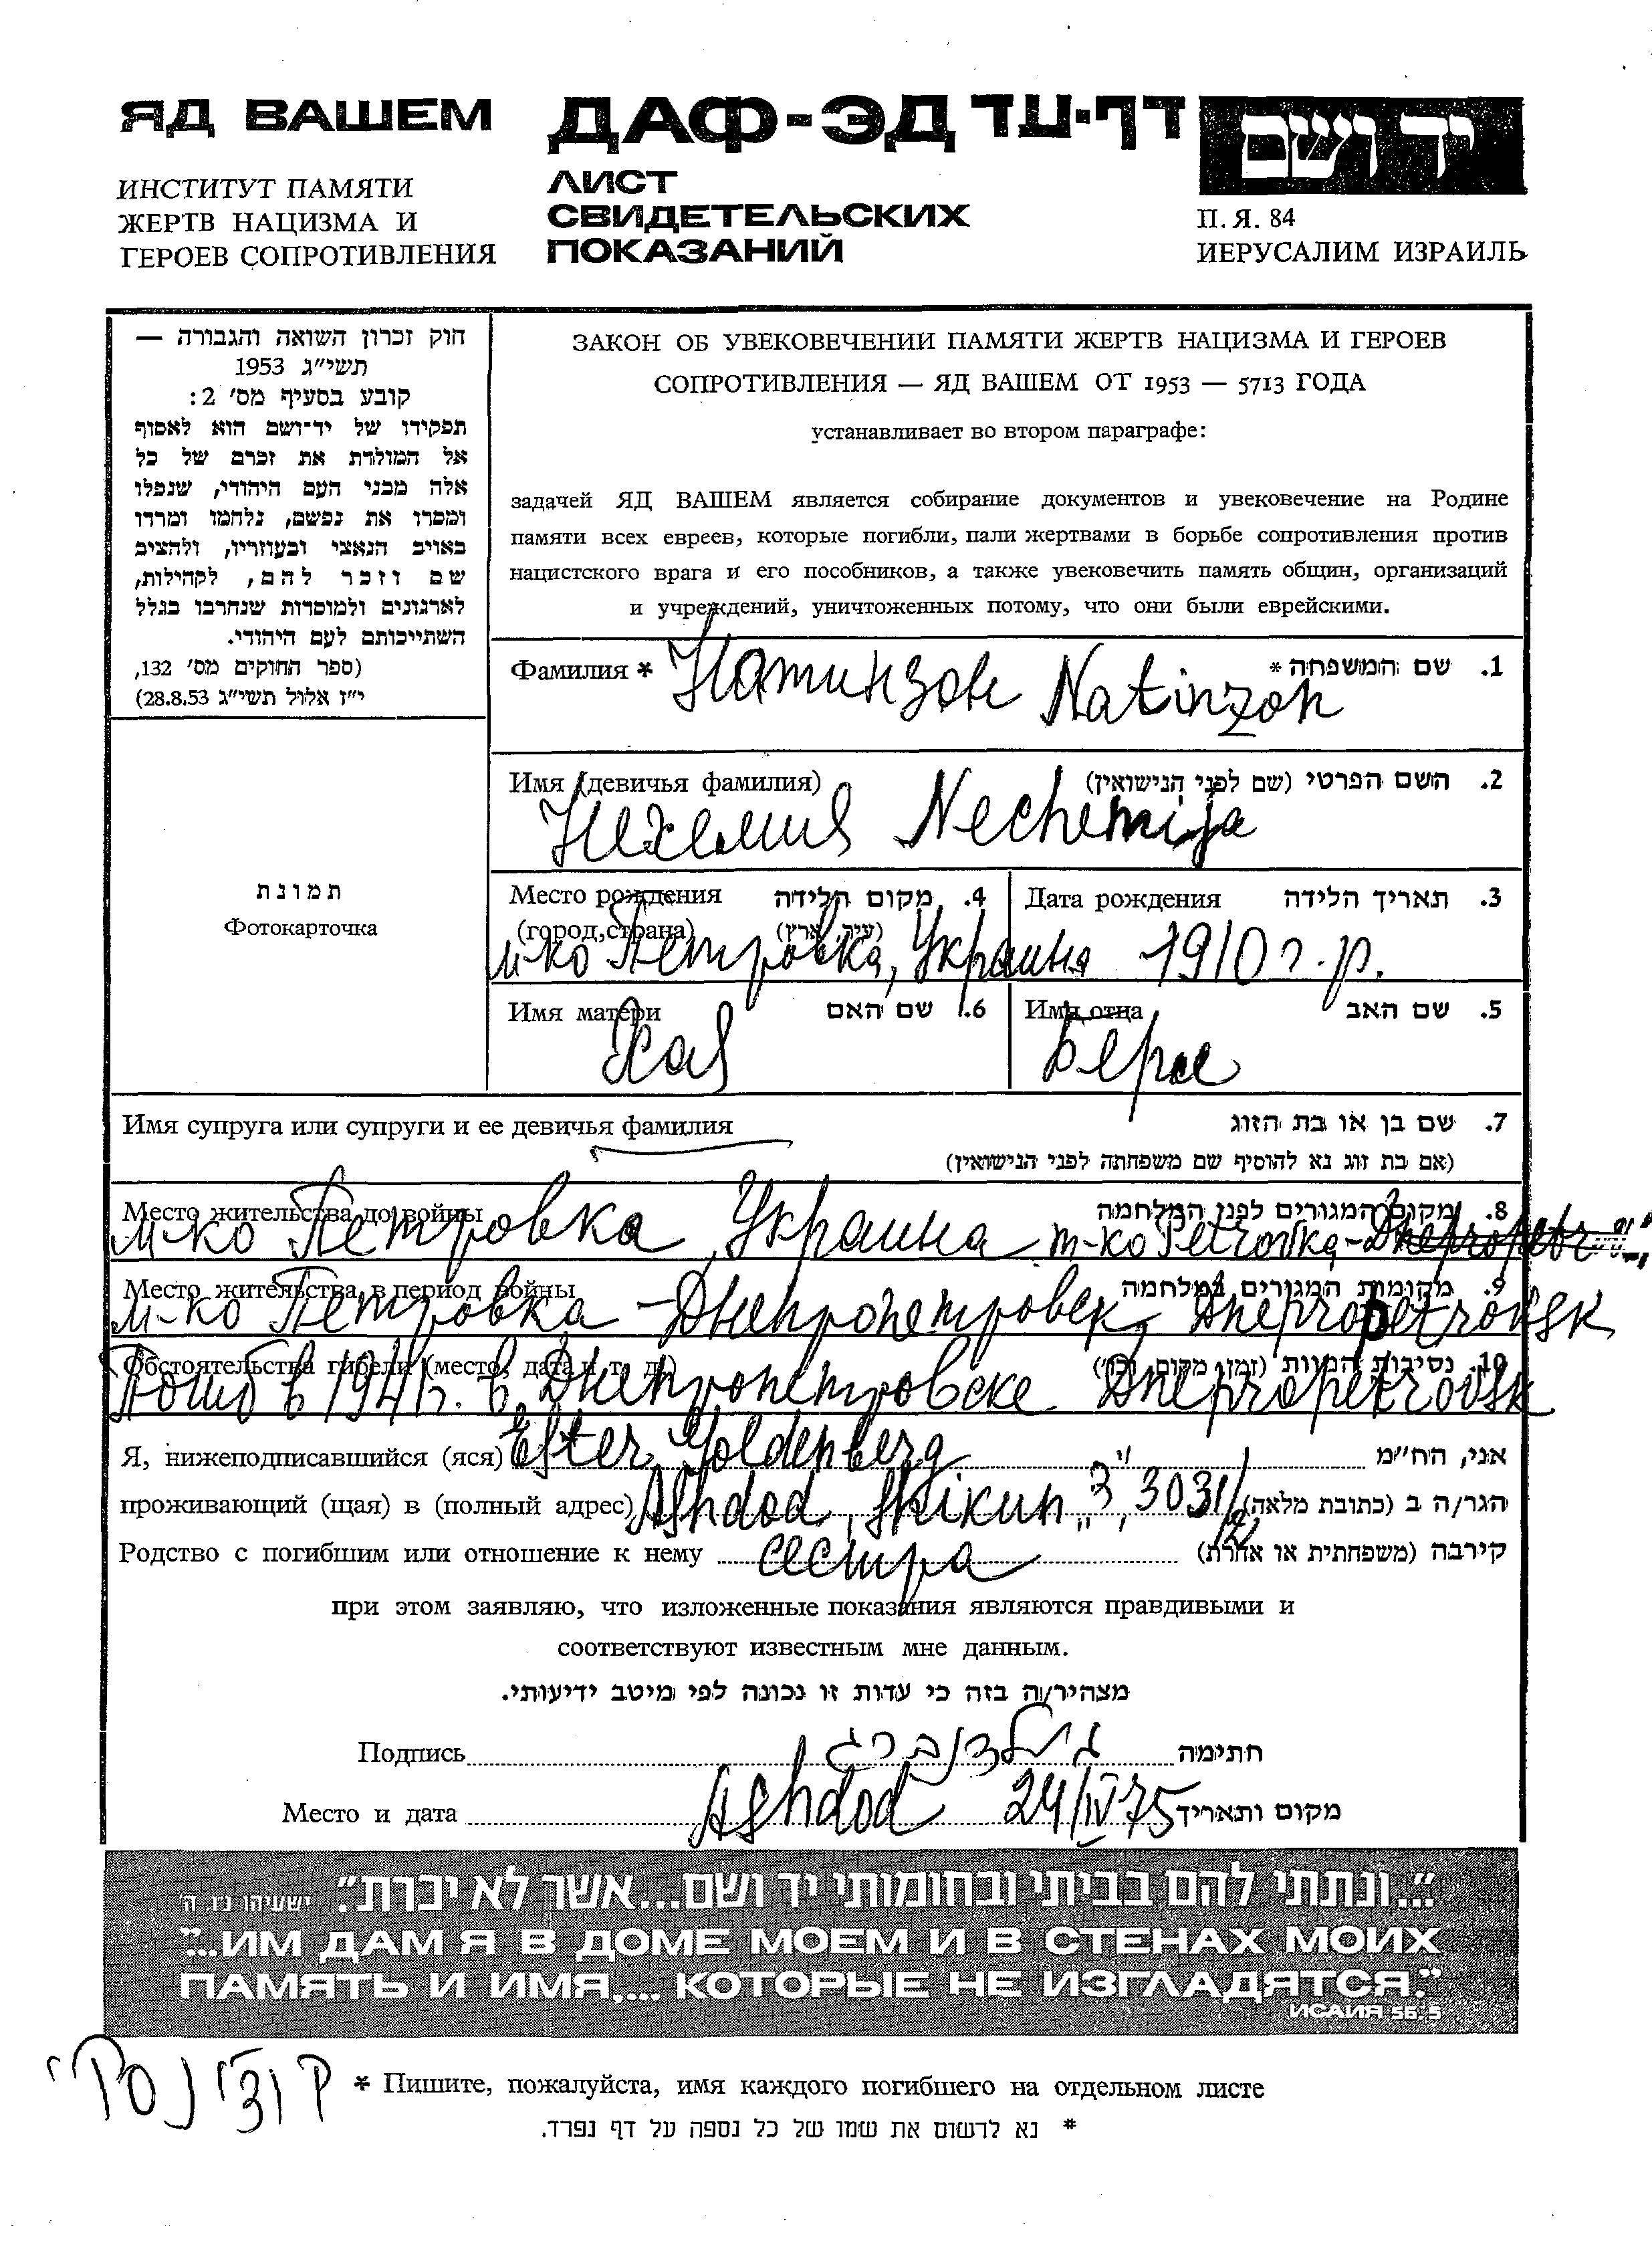 ЯД ВАШЕМ
ИНСТИТУТ ПАМЯТИ
ЖЕРТВ НАЦИЗМА И
ГЕРОЕВ СОПРОТИВЛЕНИЯ
ДАФ-ЭД דף-עד
ЛИСТ
СВИДЕТЕЛЬСКИХ
ПОКАЗАНИЙ
יד ושם
П. Я. 84
ИЕРУСАЛИМ ИЗРАИЛЬ
חוק זכרון השואה והגבורה —
תשי"ג 1953
קובע בסעיף מס' 2:
תפקידו של יד-ושם הוא לאסוף
אל המולדת את זכרם של כל
אלה מבני העם היהודי, שנפלו
ומסרו את נפשם, נלחמו ומרדו
באויב הנאצי ובעוזריו, ולהציב
שם וזכר להם, לקהילות,
לארגונים ולמוסדות שנחרבו בגלל
השתייכותם לעם היהודי.
(ספר החוקים מס' 132,
י"ז אלול תשי"ג 28.8.53)
תמונת
Фотокарточка
ЗАКОН ОБ УВЕКОВЕЧЕНИИ ПАМЯТИ ЖЕРТВ НАЦИЗМА И ГЕРОЕВ
СОПРОТИВЛЕНИЯ — ЯД ВАШЕМ ОТ 1953 — 5713 ГОДА
устанавливает во втором параграфе:
задачей ЯД ВАШЕМ является собирание документов и увековечение на Родине
памяти всех евреев, которые погибли, пали жертвами в борьбе сопротивления против
нацистского врага и его пособников, а также увековечить память общин, организаций
и учреждений, уничтоженных потому, что они были еврейскими.
Фамилия * 1. שם המשפחה *
Натинзон Natinzon
Имя (девичья фамилия) 2. השם הפרטי (שם לפני הנישואין)
Нехемия Nechemija
Место рождения 4. מקום הלידה Дата рождения 3. תאריך הלידה
(город, страна) (עיר, ארץ)
м-ко Петровка, Украина 1910 г.р.
Имя матери 6. שם האם Имя отца 5. שם האב
Хая Берле
Имя супруга или супруги и ее девичья фамилия 7. שם בן או בת הזוג
(אם בת זוג נא להוסיף שם משפחתה לפני הנישואין)
Место жительства до войны 8. מקום המגורים לפני המלחמה
м-ко Петровка, Украина m-ko Petrovka-
Место жительства в период войны 9. מקומות המגורים במלחמה
м-ко Петровка - Днепропетровск, Dnepropetrovsk
Обстоятельства гибели (место, дата и т. д.) 10. נסיבות המוות (זמן, מקום, וכו')
Погиб в 1941г. в Днепропетровске Dnepropetrovsk
Я, нижеподписавшийся (яся) Ester Goldenberg אני, הח"מ
проживающий (щая) в (полный адрес) Ashdod, Shikun הגר/ה ב (כתובת מלאה)
Родство с погибшим или отношение к нему сестра קירבה (משפחתית או אחרת)
при этом заявляю, что изложенные показания являются правдивыми и
соответствуют известным мне данным.
מצהיר/ה בזה כי עדות זו נכונה לפי מיטב ידיעותי.
Подпись גולדנברג חתימה
Место и дата Ashdod 24/IV 75 מקום ותאריך
"...ונתתי להם בביתי ובחומותי יד ושם...אשר לא יכרת." ישעיהו נ"ו, ה'
"...ИМ ДАМ Я В ДОМЕ МОЕМ И В СТЕНАХ МОИХ
ПАМЯТЬ И ИМЯ,... КОТОРЫЕ НЕ ИЗГЛАДЯТСЯ."
ИСАИЯ 56, 5
* Пишите, пожалуйста, имя каждого погибшего на отдельном листе
* נא לרשום את שמו של כל נספה על דף נפרד.